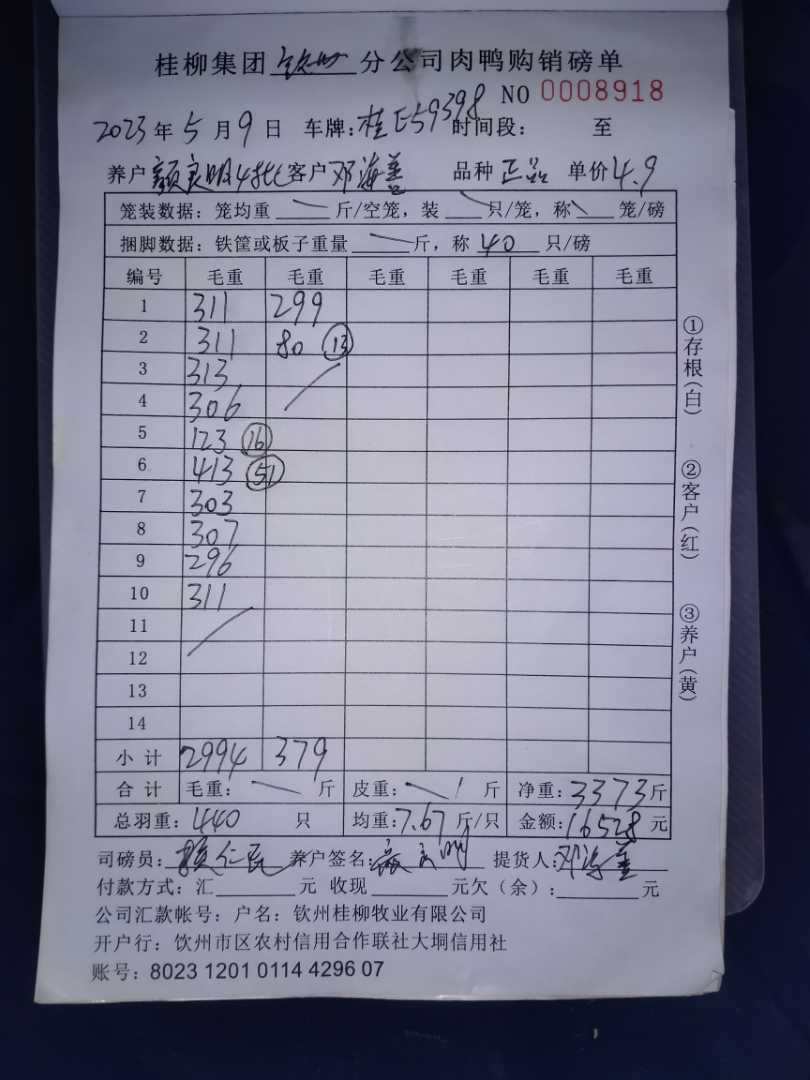 桂柳集团 钦州 分公司肉鸭购销磅单
NO 0008918
2023年5月9日 车牌:桂E59398 时间段: 至
养户 颜良明4批 客户 邓海善 品种 正品 单价4.9
笼装数据:笼均重 斤/空笼,装 只/笼,称 笼/磅
捆脚数据:铁筐或板子重量 斤,称 40 只/磅
编号 毛重 毛重 毛重 毛重 毛重 毛重
1 311 299
2 311 80 13
3 313
4 306
5 123 16
6 413 51
7 303
8 307
9 296
10 311
11
12
13
14
小计 2994 379
合计 毛重: 斤 皮重: 斤 净重:3373斤
总羽重:440 只 均重:7.67斤/只 金额:16528元
司磅员: 养户签名: 提货人:邓海善
付款方式:汇 元 收现 元欠(余): 元
公司汇款帐号:户名:钦州桂柳牧业有限公司
开户行:钦州市区农村信用合作联社大垌信用社
账号:8023 1201 0114 4296 07
①存根(白)
②客户(红)
③养户(黄)